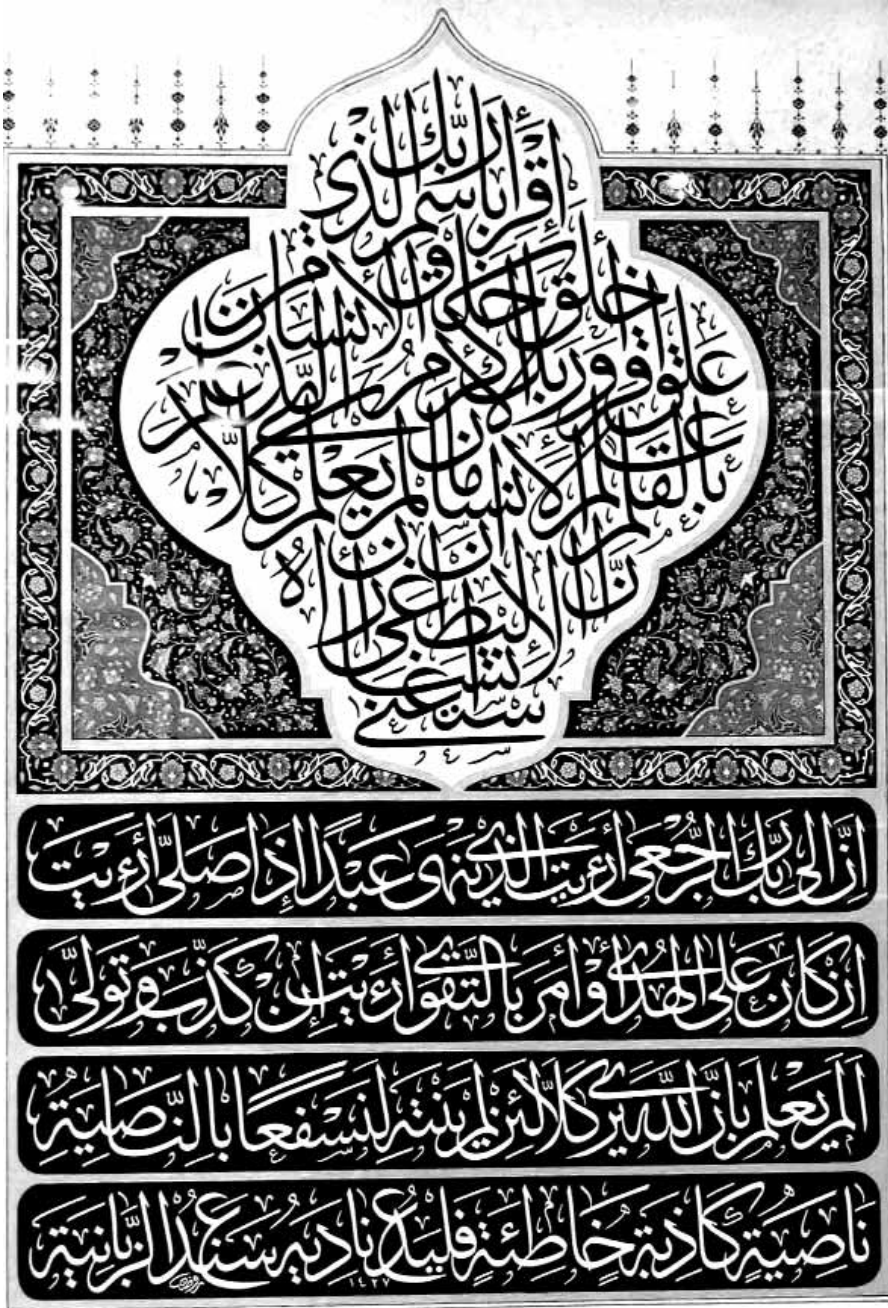 اقرأ باسم ربك الذي
خلق خلق الإنسان من
علق اقرأ وربك الأكرم الذي علم
بالقلم علم الإنسان ما لم يعلم كلا
إن الإنسان ليطغى أن رآه
استغنى
اِنَّ اِلى رَبِّكَ الرُّجْعى أرءيت الذي ينهى عَبدًا اِذا صَلّى أرءيت
اِن كان على الهُدى أو أمَرَ بالتَّقوى أرءيت إن كذَّب وتولّى
الم يعلم بانَّ الله يرى كلّا لئن لم ينته لنسفعًا بالنّاصية
ناصِيةٍ كاذِبةٍ خاطئةٍ فليدعُ ناديه سندعُ الزَّبانية
١٤٢٧